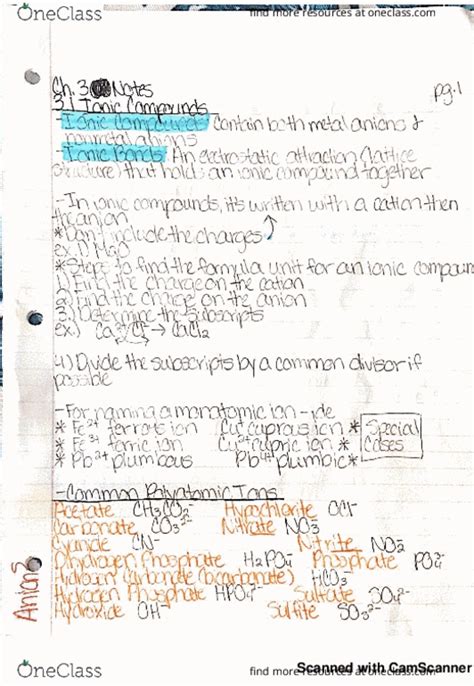 OneClass
find more resources at oneclass.com
Ch. 3 Notes
pg. 1
3.1 Ionic Compounds
-Ionic Compounds contain both metal anions &
nonmetal anions
-Ionic Bonds: An electrostatic attraction (lattice
structure) that holds an ionic compound together
-In ionic compounds, it's written with a cation then
the anion
*Don't include the charges
ex.) MgO
*Steps to find the formula unit for an ionic compound
1) Find the charge on the cation
2) Find the charge on the anion
3.) Determine the subscripts
ex.) Ca²⁺ Cl⁻ → CaCl₂
4.) Divide the subscripts by a common divisor if
possible
-For naming a monatomic ion - ide
* Fe²⁺ ferrous ion Cu⁺ cuprous ion * Special
* Fe³⁺ ferric ion Cu²⁺ cupric ion * Cases
* Pb²⁺ plumbous Pb⁴⁺ plumbic *
-Common Polyatomic Ions
Acetate CH₃CO₂⁻ Hypochlorite OCl⁻
Carbonate CO₃²⁻ Nitrate NO₃⁻
Cyanide CN⁻ Nitrite NO₂⁻
Dihydrogen Phosphate H₂PO₄⁻ Phosphate PO₄³⁻
Hydrogen Carbonate (bicarbonate) HCO₃⁻
Hydrogen Phosphate HPO₄²⁻ Sulfate SO₄²⁻
Hydroxide OH⁻ Sulfite SO₃²⁻
Anions
OneClass
find more resources at oneclass.com
Scanned with CamScanner